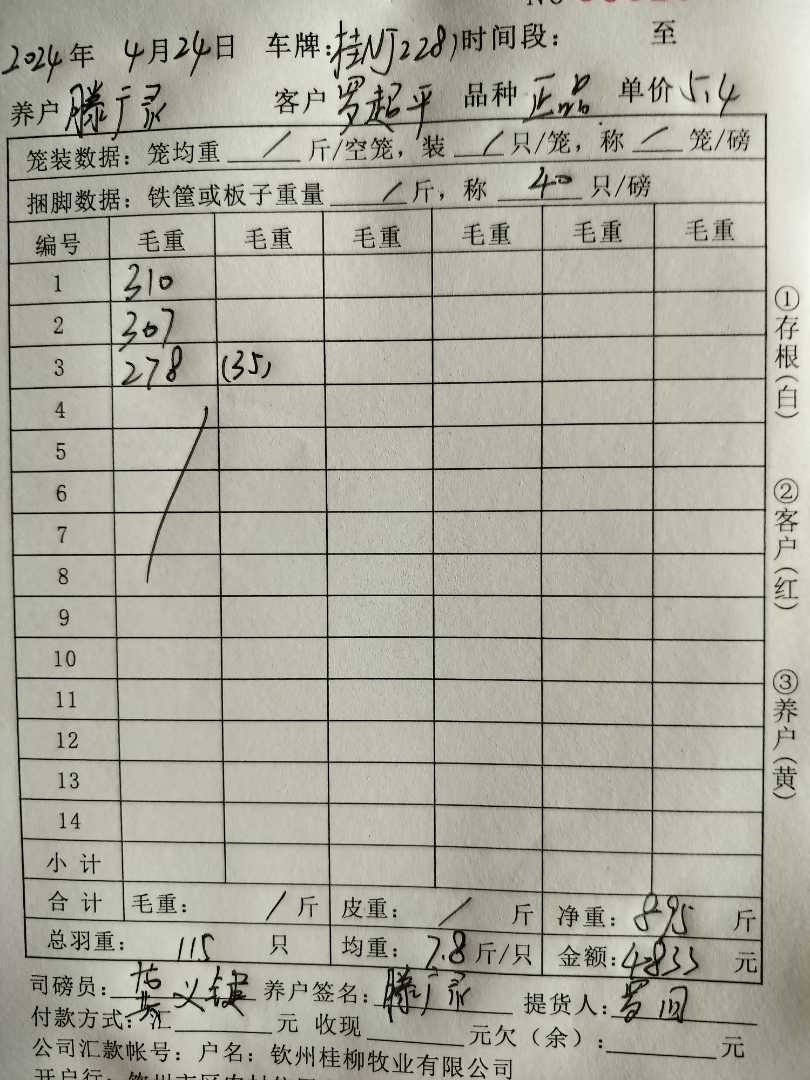 2024年 4月24日 车牌:桂NJ2281 时间段: 至
养户 滕广灵 客户 罗超平 品种 正品 单价 5.4
笼装数据: 笼均重 / 斤/空笼, 装 / 只/笼, 称 / 笼/磅
捆脚数据: 铁筐或板子重量 / 斤, 称 40 只/磅
编号 毛重 毛重 毛重 毛重 毛重 毛重
1 310
2 307
3 278 (35)
4
5
6
7
8
9
10
11
12
13
14
小计
合计 毛重: / 斤 皮重: / 斤 净重: 895 斤
总羽重: 115 只 均重: 7.8 斤/只 金额: 4833 元
司磅员: 义键 养户签名: 滕广灵 提货人: 罗
付款方式: 汇 元 收现 元欠(余): 元
公司汇款帐号: 户名: 钦州桂柳牧业有限公司
开户行:
①存根(白)
②客户(红)
③养户(黄)